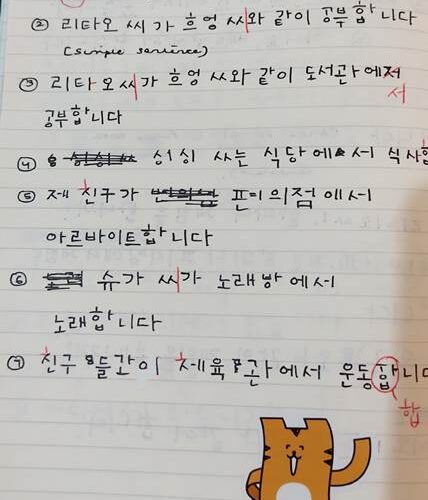 ② 리타오 씨가 흐엉 씨와 같이 공부합니다
(simple sentence)
③ 리타오 씨가 흐엉 씨와 같이 도서관에서
서
공부합니다
④ 서싱 씨는 식당에서 식사합
⑤ 제 친구가 편의점에서
아르바이트합니다
⑥ 슈가 씨가 노래방에서
노래합니다
⑦ 친구들같이 체육관에서 운동합니다
합